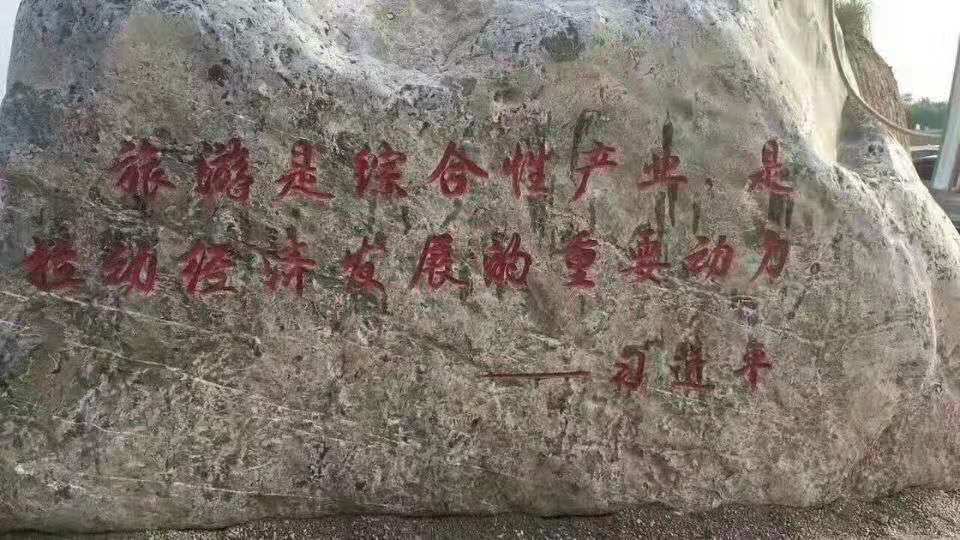 旅游是综合性产业,是
拉动经济发展的重要动力。
——习近平